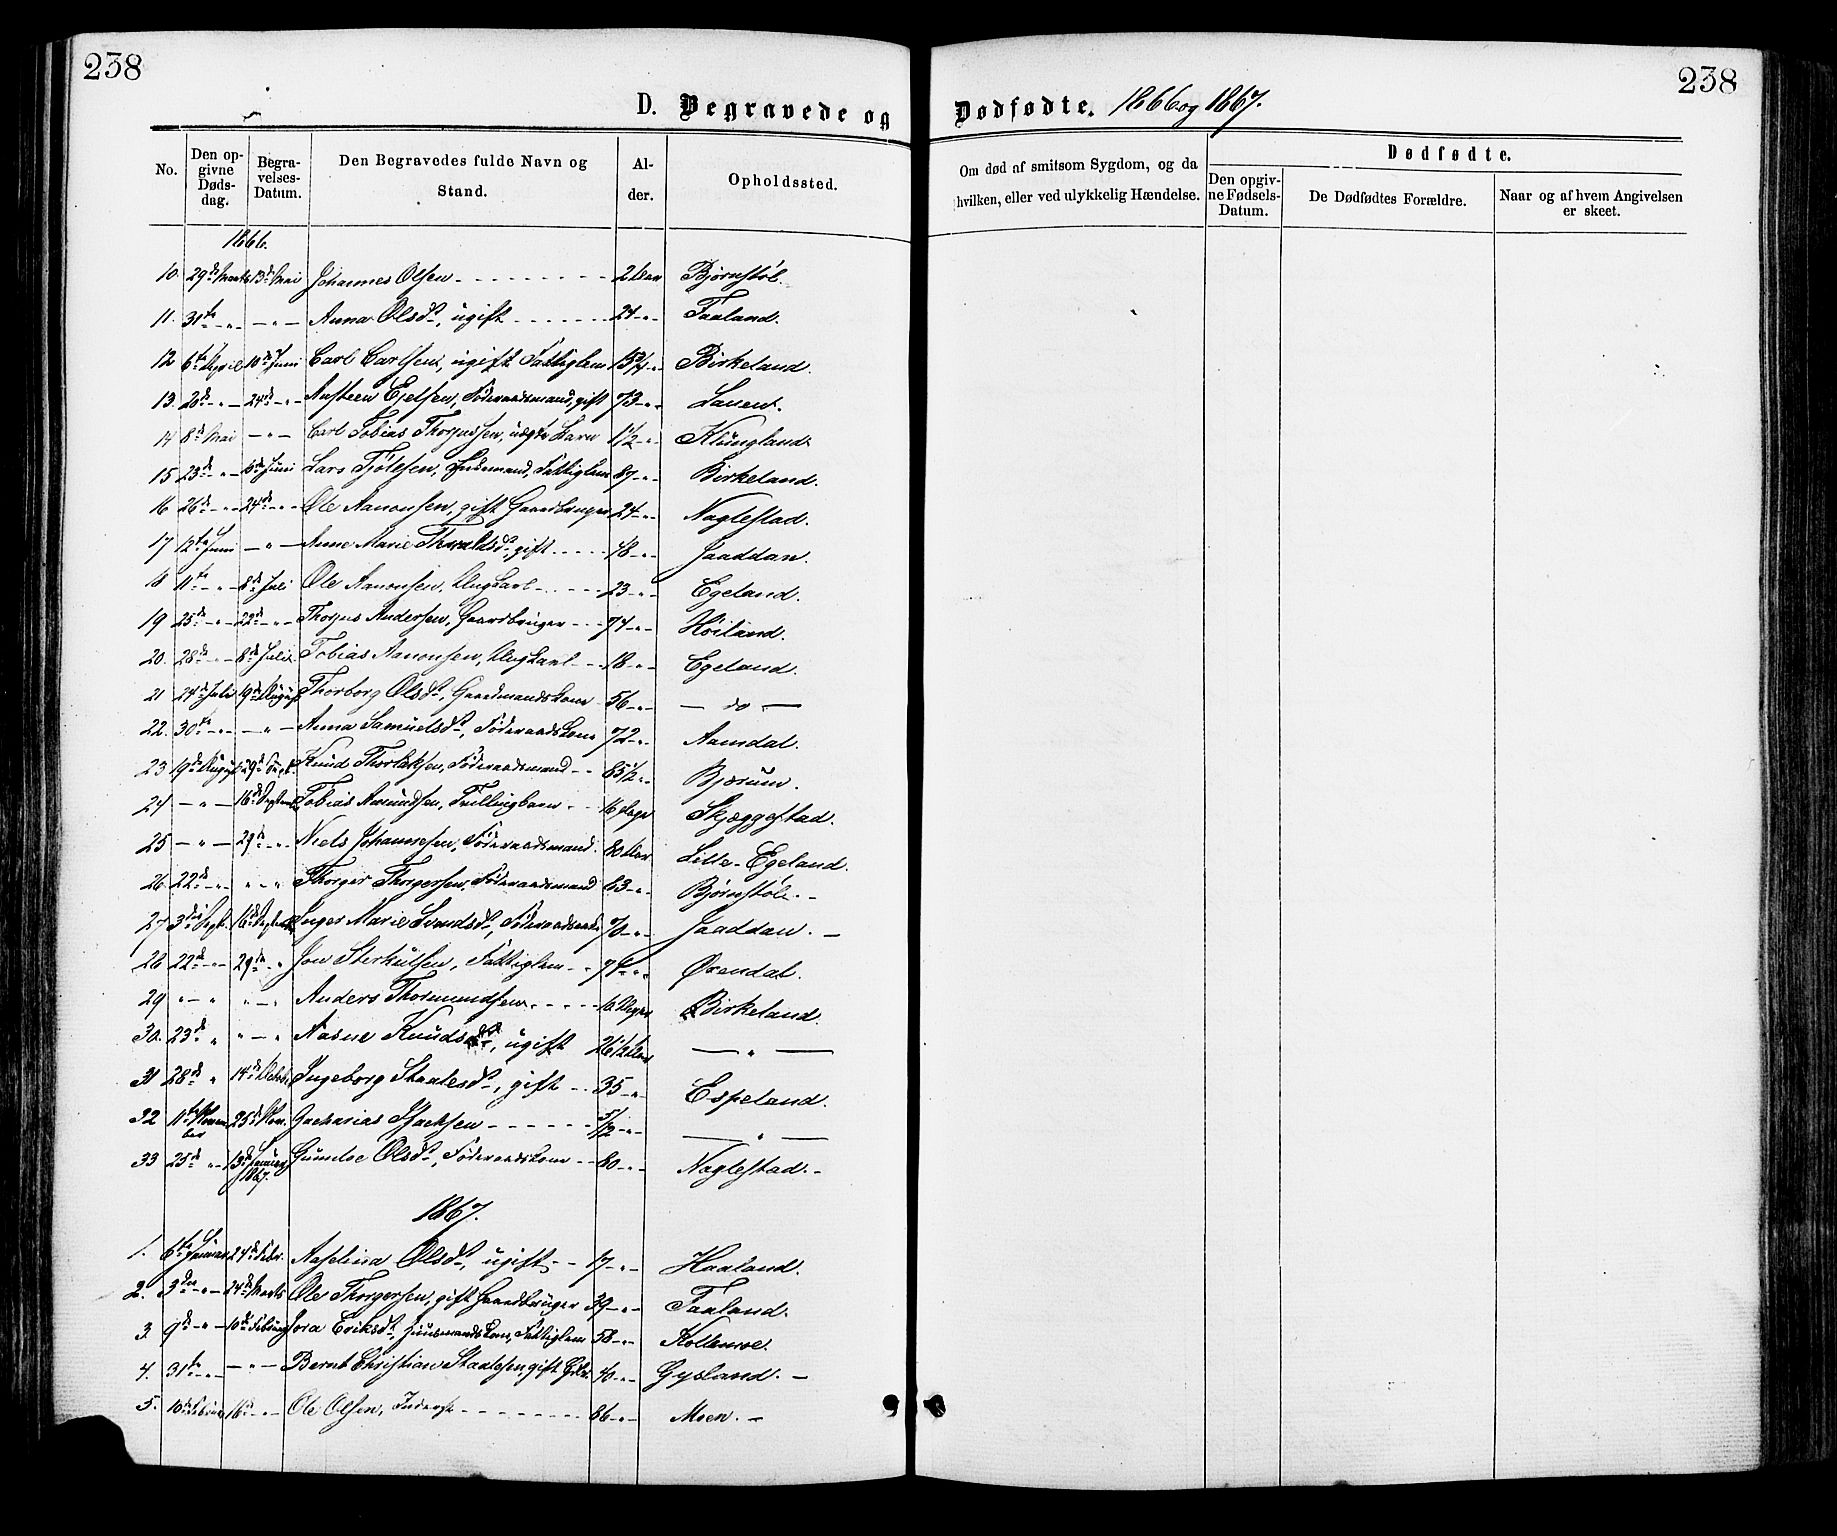 238
238
D. Begravede og Dødfødte. 1866 og 1867.
No.
Den opgivne Dødsdag.
Begravelses-Datum.
Den Begravedes fulde Navn og Stand.
Alder.
Opholdssted.
Om død af smitsom Sygdom, og da hvilken, eller ved ulykkelig Hændelse.
Dødfødte.
Den opgivne Fødsels-Datum.
De Dødfødtes Forældre.
Naar og af hvem Angivelsen er skeet.
1866.
10. 29de Marts 13de Mai Johannes Olsen 2 Aar Bjørnstøl.
11. 31te - " - - " - Anna Olsdr, ugift 24 - " - Faaland.
12 6te April 10de Juni Carl Carlsen, ugift Fattiglem 13 3/4 - " Birkeland.
13. 20de - " - 24de - " - Austeen Ejelsen, Føderaadsmand, gift 73 - " - Lauen.
14 8de Mai - " - Carl Tobias Thorjussen, uægte Barn 1 1/2 - " - Klungland.
15 23de - " 10de Juni Lars Tjølesen, Inderst, Fattiglem 87 - " - Birkeland.
16 26de - " - 24de - " - Ole Aanonsen, gift Gaardbruger 24 - " - Naglestad.
17 12te Juni - " - Anne Marie Thoraldsdr, gift 48 - " - Jaaddan.
18 11te - " 8de Juli Ole Aanonsen, Ungkarl 23 - " - Egeland.
19 25de - " - 22de - " - Thorjus Andersen, Gaardbruger 74 - " - Høiland.
20. 28de - " - 8de Juli Tobias Aanonsen, Ungkarl 18 - " - Egeland.
21 24de Juli 19de August Thorborg Olsdr, Gaardmandskone 56 - " - - do -
22. 30te - " - - " - Anna Samuelsdr, Føderaadskone 72 - " Aamdal.
23 19de August 29de Sept. Knud Thorlaksen, Føderaadsmand 65 1/2 " - Bjærum.
24 - " - 16de Septemb Tobias Aamundsen, Tvillingbarn 16 Dage Skjæggestad.
25 - " - 29de - " - Niels Johannesen, Føderaadsmand 80 Aar Lille-Egeland.
26. 22de - " - " - " Thorger Thorgersen, Føderaadsmand 63 - " - Bjørnstøl. -
27 3die Sept. 16de Septemb Inger Marie Svendsdr, Føderaadsenke 70 - " - Jaaddan. -
28 22de - " - 29de - " Jon Sterkulsen, Fattiglem 74 - " - Ørendal.
29 " - " " - " Anders Thormundsen 16 Uger Birkeland.
30. 23de " " - " Aasne Knudsdr, ugift 26 1/2 Aar - " -
31 28de " 14de Octob. Ingeborg Staalesdr, gift 35 - " Espeland.
32 11te November 25de Nov. Zacharias Isacksen 5/12 - " - - " -
33 25de " - 13de Januar 1867. Gunelie Olsdr, Føderaadskone 80 - " - Naglestad. -
1867.
1. 6te Januar 24de Febr. Aaselina Olsdr, ugift 17 - " - Haaland.
2. 3die - " - 24de Marts Ole Thorgersen, gift Gaardbruger 39 - " - Faaland.
3. 9de - " - 10de Februar Jora Eriksdr, Huusmandskone, Fattiglem 58 - " - Kollemoe.
4. 31te - " - - " - Bernt Christian Staalesen, gift Gbr. 40 - " - Gysland. -
5. 10de Februar 16de - " - Ole Olsen, Inderst 86 - " - Moen. -